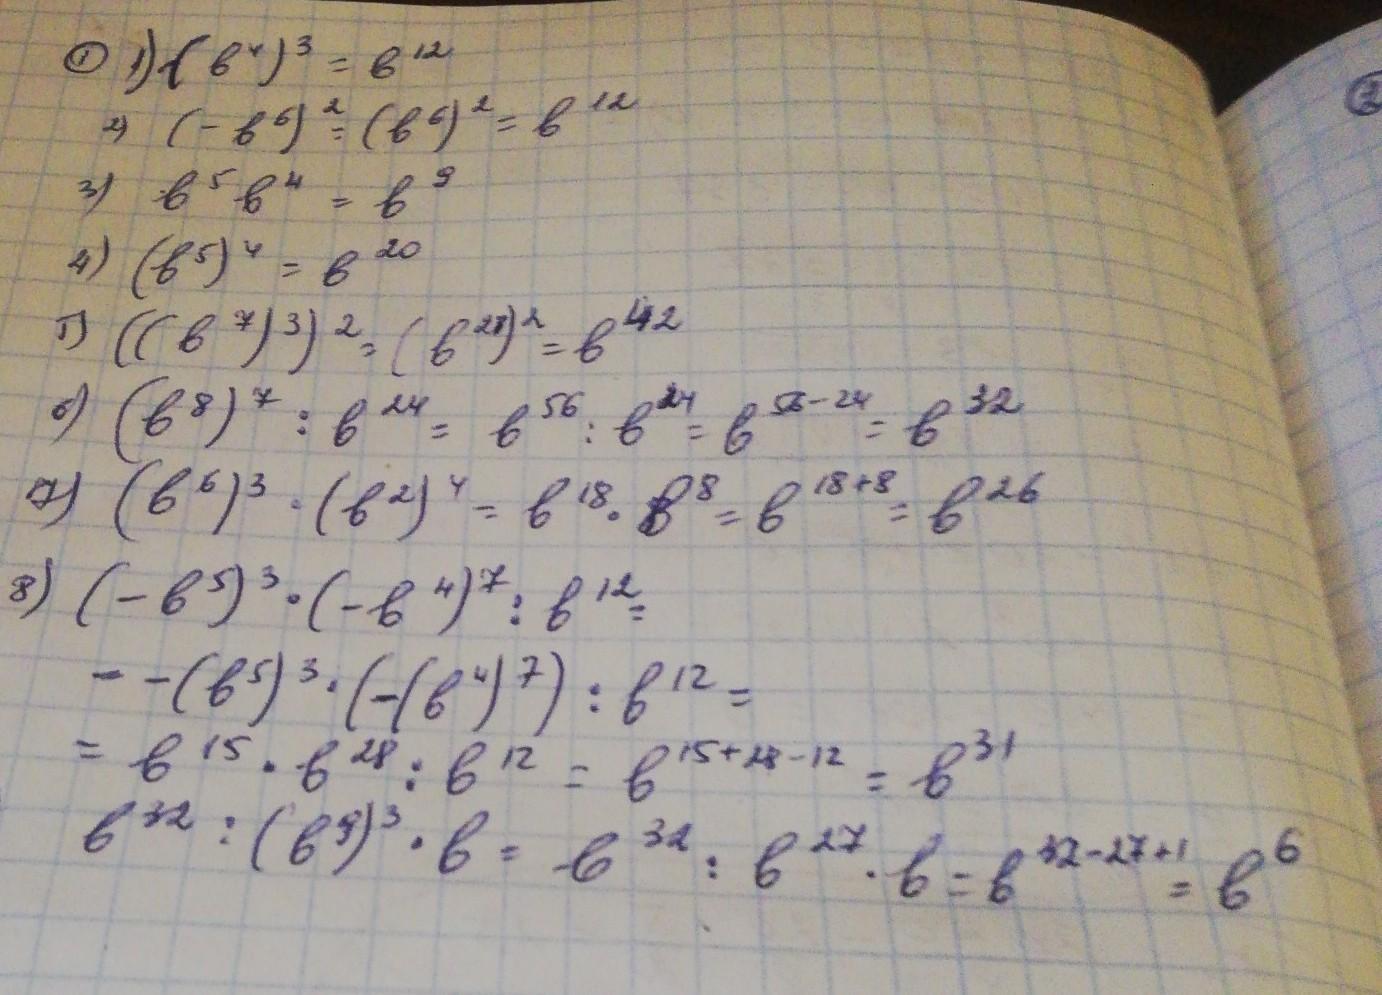 ① 1) (b⁴)³ = b¹²
2) (-b⁶)² = (b⁶)² = b¹²
3) b⁵b⁴ = b⁹
4) (b⁵)⁴ = b²⁰
5) ((b⁷)³)² = (b²¹)² = b⁴²
6) (b⁸)⁷ : b²⁴ = b⁵⁶ : b²⁴ = b⁵⁶⁻²⁴ = b³²
7) (b⁶)³ · (b²)⁴ = b¹⁸ · b⁸ = b¹⁸⁺⁸ = b²⁶
8) (-b⁵)³ · (-b⁴)⁷ : b¹² =
- -(b⁵)³ · (-(b⁴)⁷) : b¹² =
= b¹⁵ · b²⁸ : b¹² = b¹⁵⁺²⁸⁻¹² = b³¹
b³² : (b⁹)³ · b = b³² : b²⁷ · b = b³²⁻²⁷⁺¹ = b⁶
②